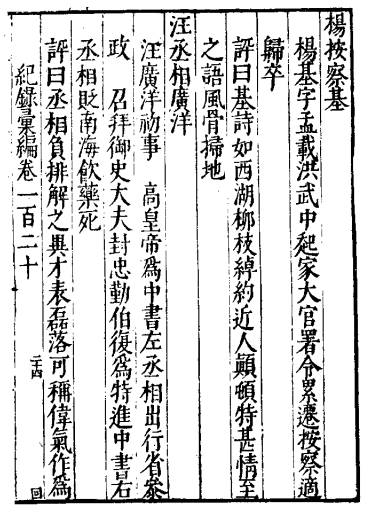 楊按察基
楊基字孟載洪武中起家大官署令累遷按察適
歸卒
評曰基詩如西湖柳枝綽約近人顚頓特甚情至
之語風骨掃地
汪丞相廣洋
汪廣洋初事 高皇帝爲中書左丞相出行省叅
政 召拜御史大夫封忠勤伯復爲特進中書右
丞相貶南海飮藥死
評曰丞相負排解之輿才表磊落可稱偉氣作爲
紀錄彙編卷一百二十